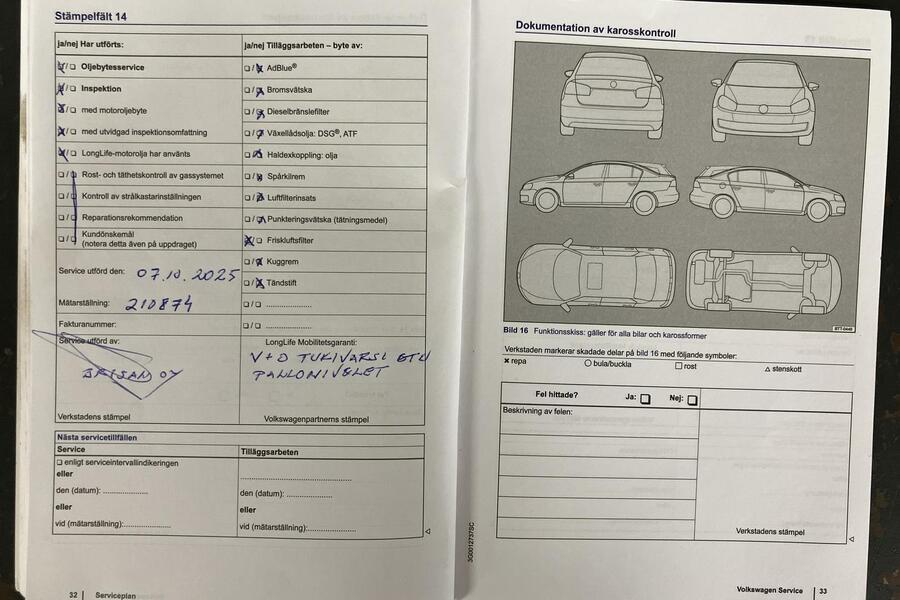 Stämpelfält 14
ja/nej Har utförts:
Oljebytesservice
Inspektion
med motoroljebyte
med utvidgad inspektionsomfattning
LongLife-motorolja har använts
Rost- och täthetskontroll av gassystemet
Kontroll av strålkastarinställningen
Reparationsrekommendation
Kundönskemål
(notera detta även på uppdraget)
Service utförd den: 07.10.2025
Mätarställning: 210874
Fakturanummer:
Service utförd av:
Verkstadens stämpel
ja/nej Tilläggsarbeten – byte av:
AdBlue®
Bromsvätska
Dieselbränslefilter
Växellådsolja: DSG®, ATF
Haldexkoppling: olja
Spårkilrem
Luftfilterinsats
Punkteringsvätska (tätningsmedel)
Friskluftsfilter
Kuggrem
Tändstift
LongLife Mobilitetsgaranti:
V+D TUKIVARSI ETU
PALLONIVELET
Volkswagenpartnerns stämpel
Nästa servicetillfällen
Service
enligt serviceintervallindikeringen
eller
den (datum): ......................
eller
vid (mätarställning):......................
Tilläggsarbeten
den (datum): ......................
eller
vid (mätarställning):......................
32 | Serviceplan
Dokumentation av karosskontroll
BTT-0449
Bild 16 Funktionsskiss: gäller för alla bilar och karossformer
Verkstaden markerar skadade delar på bild 16 med följande symboler:
repa
bula/buckla
rost
stenskott
Fel hittade? Ja: Nej:
Beskrivning av felen:
Verkstadens stämpel
3G0012737SC
Volkswagen Service | 33